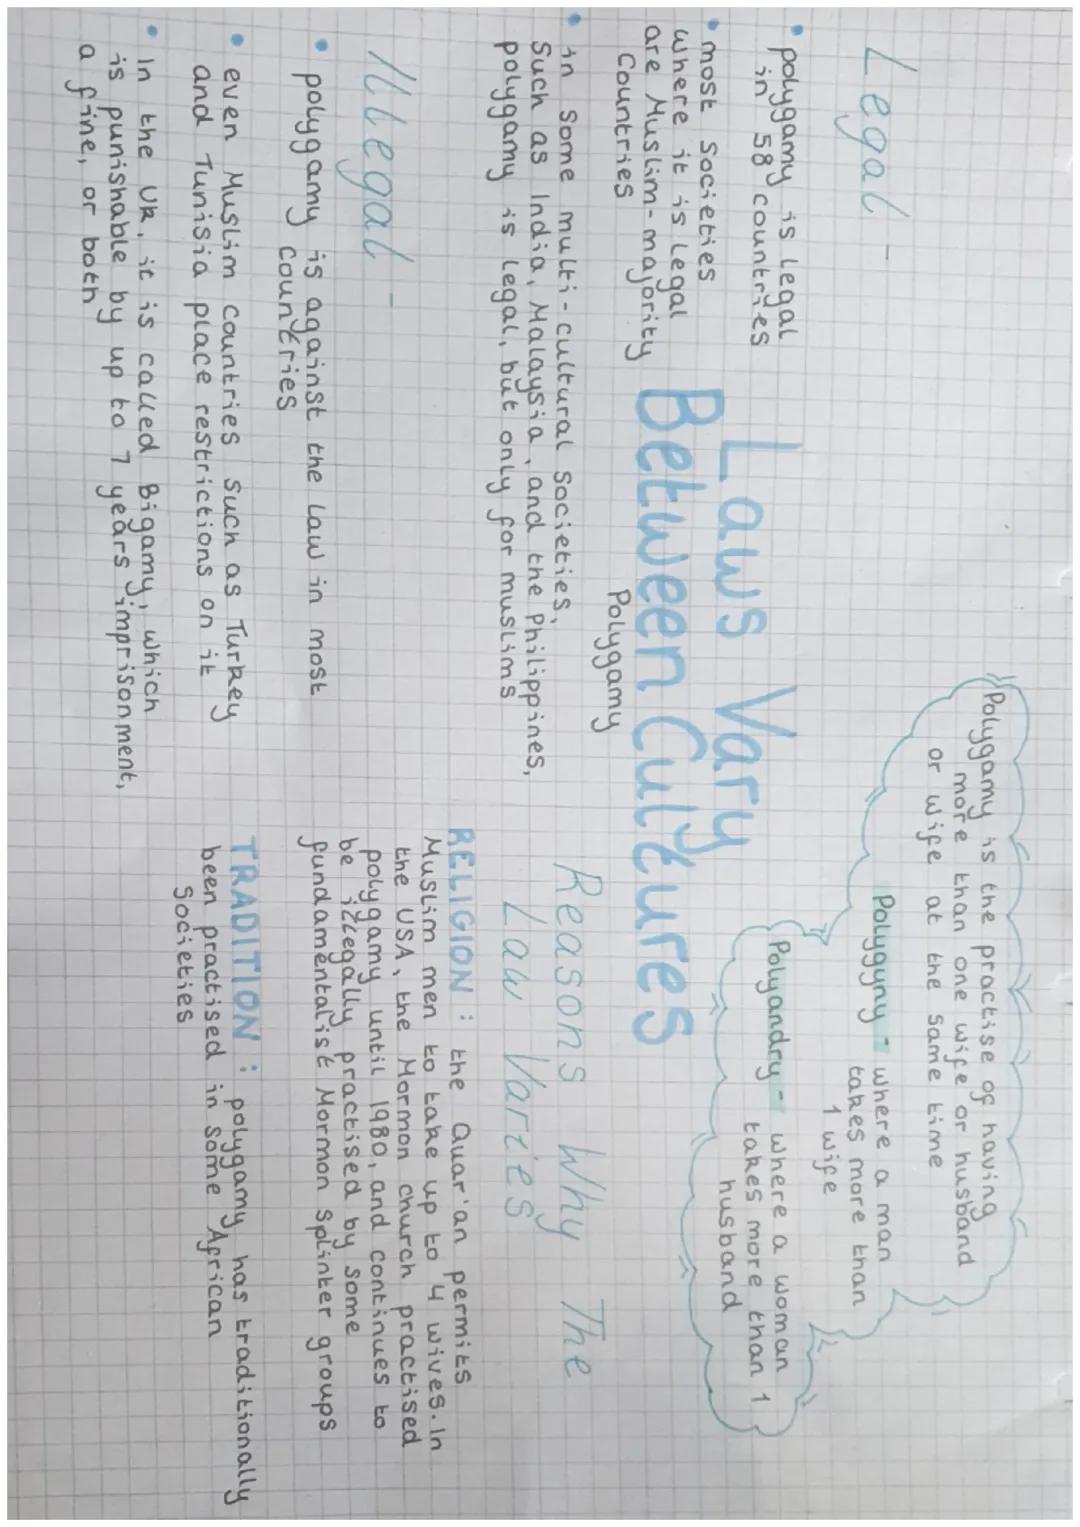 Laws Vary
Between Cultures
Polygamy
Polygamy is the practise of having
more than one wife or husband
or wife at the same time
Polygyny - where a man
takes more than
1 wife
Polyandry - where a woman
takes more than 1
husband
Legal -
• polygamy is legal
in 58 countries
• most societies
where it is legal
are Muslim-majority
Countries
• in some multi-cultural societies,
Such as India, Malaysia, and the Philippines,
polygamy is legal, but only for muslims
Illegal -
• polygamy is against the law in most
countries
• even Muslim countries such as Turkey
and Tunisia place restrictions on it
• In the UK, it is called Bigamy, which
is punishable by up to 7 years imprisonment,
a fine, or both
Reasons Why The
Law Varies
RELIGION : the Quar'an permits
Muslim men to take up to 4 wives. In
the USA, the Mormon church practised
polygamy until 1980, and continues to
be illegally practised by some
fundamentalist Mormon splinter groups
TRADITION : polygamy has traditionally
been practised in some African
Societies